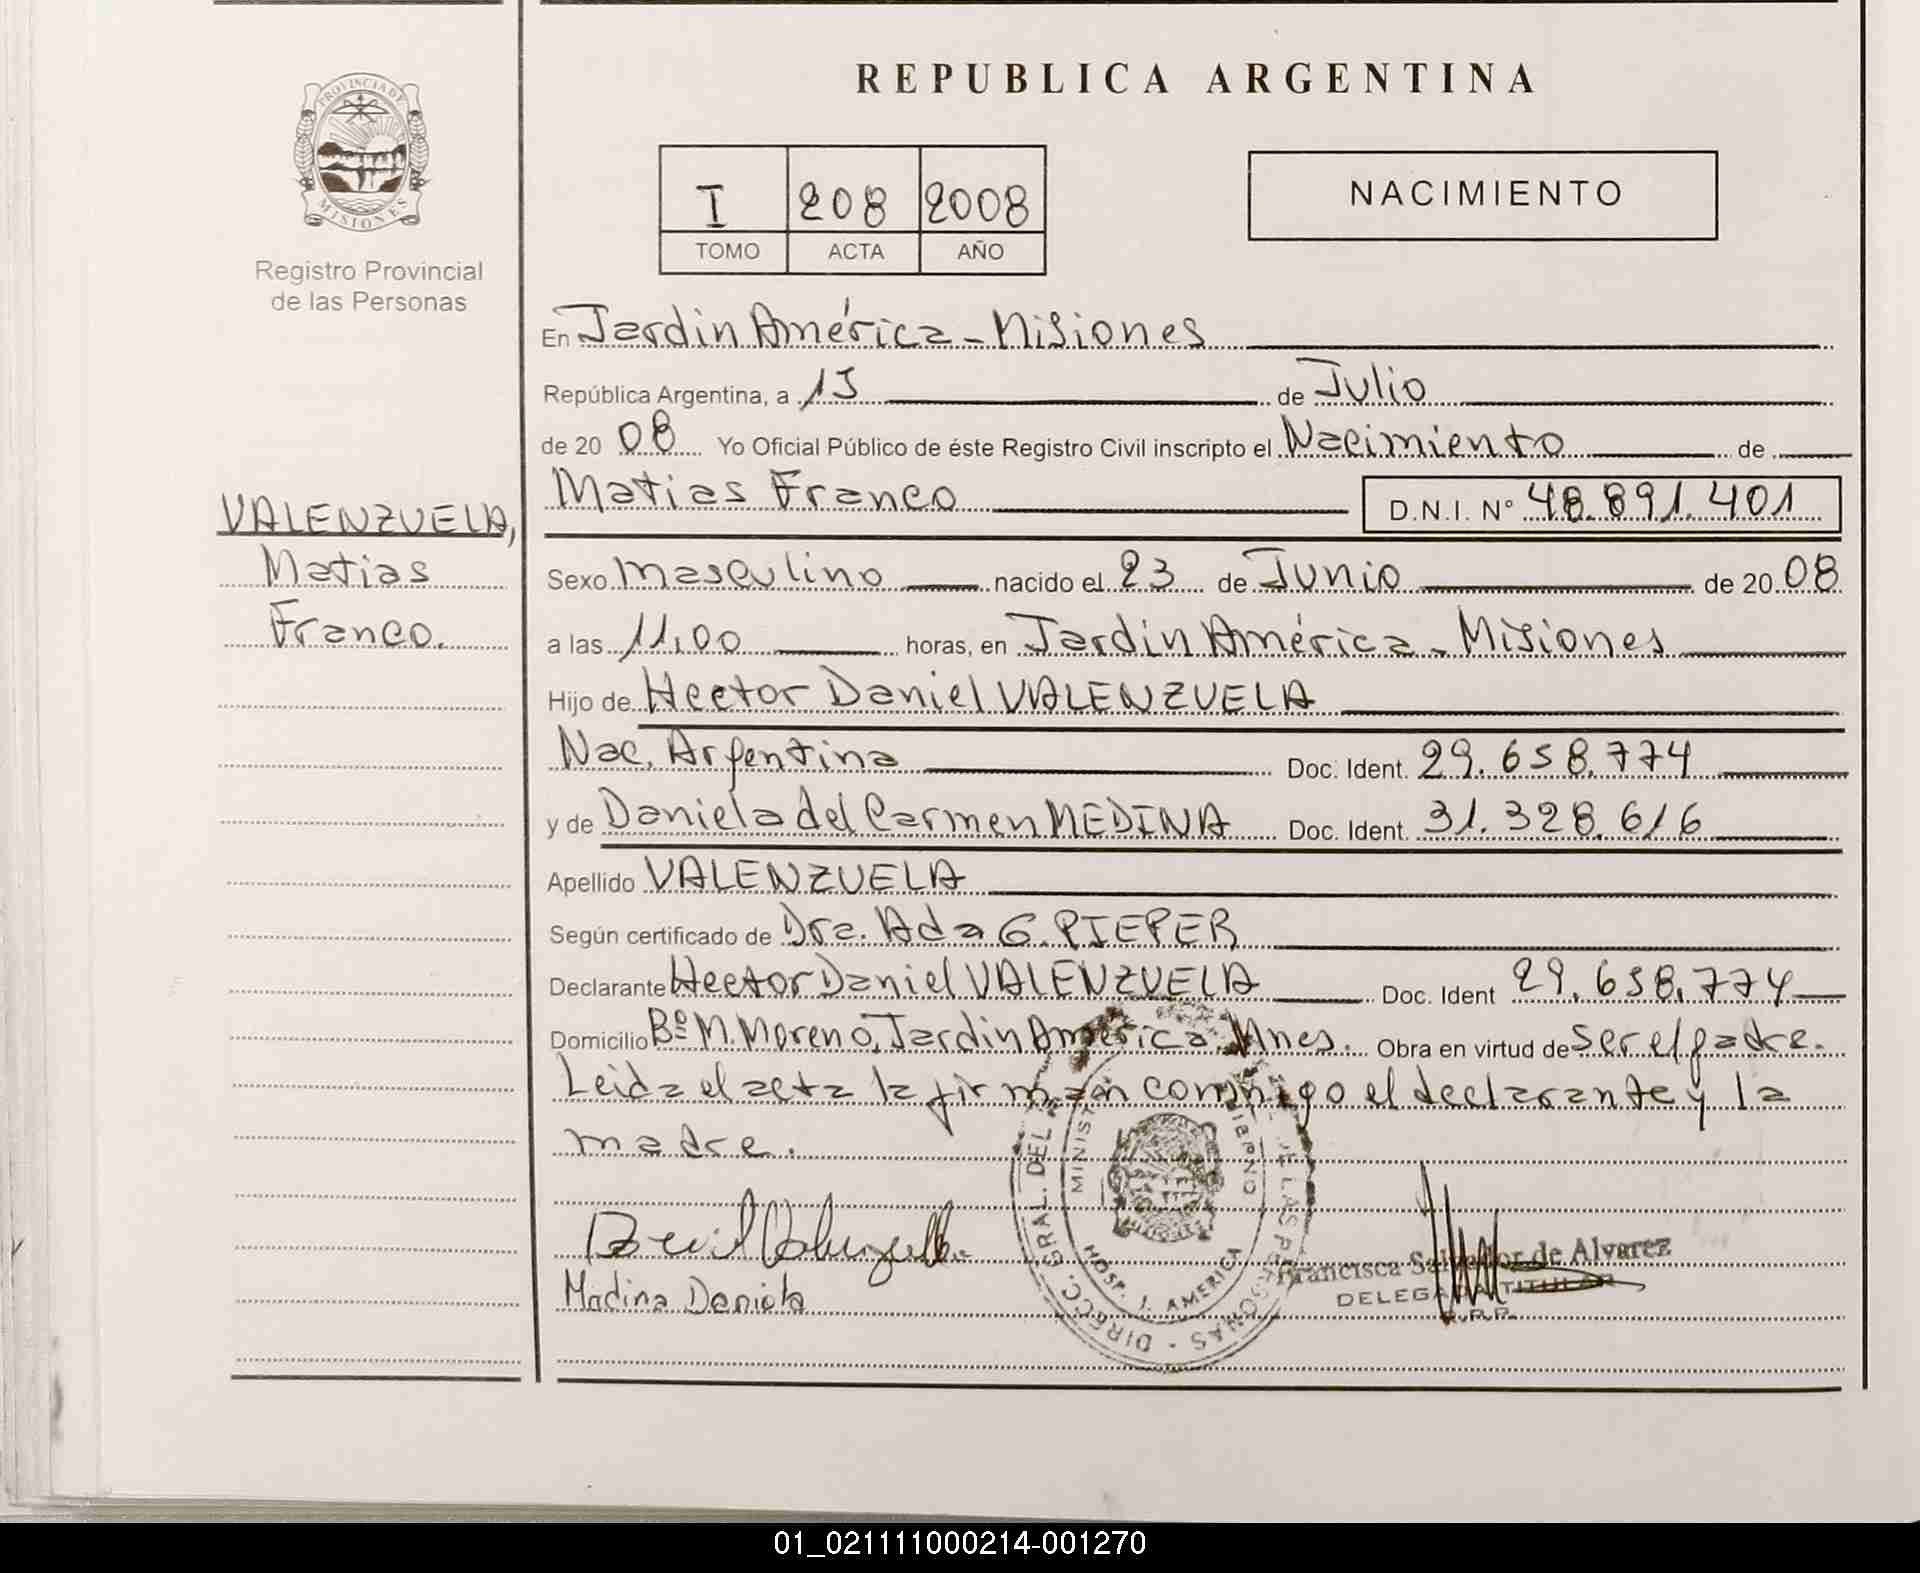 REPUBLICA ARGENTINA
PROVINCIA DE
MISIONES
Registro Provincial
de las Personas
I 208 2008
TOMO ACTA AÑO
NACIMIENTO
En Jardin América - Misiones
República Argentina, a 15 de Julio
de 20 08 Yo Oficial Público de éste Registro Civil inscripto el Nacimiento de
Matias Franco D.N.I. N° 48.891.401
VALENZUELA,
Matias
Franco.
Sexo masculino nacido el 23 de Junio de 20 08
a las 11,00 horas, en Jardin América - Misiones
Hijo de Hector Daniel VALENZUELA
Nac. Argentina Doc. Ident. 29.658.774
y de Daniela del Carmen MEDINA Doc. Ident. 31.328.616
Apellido VALENZUELA
Según certificado de Dra. Ada G. PIEPER
Declarante Hector Daniel VALENZUELA Doc. Ident 29.658.774
Domicilio Bº M. Moreno, Jardin América, Mnes. Obra en virtud de ser el padre.
Leida el acta la firman conmigo el declarante y la
madre.
Medina Daniela
DIRECC. GRAL. DEL LAS PERSONAS
MINIST
HOSP. J. AMERICA
Francisca Salvador de Alvarez
DELEGADA TITULAR
R.P.P.
01_021111000214-001270